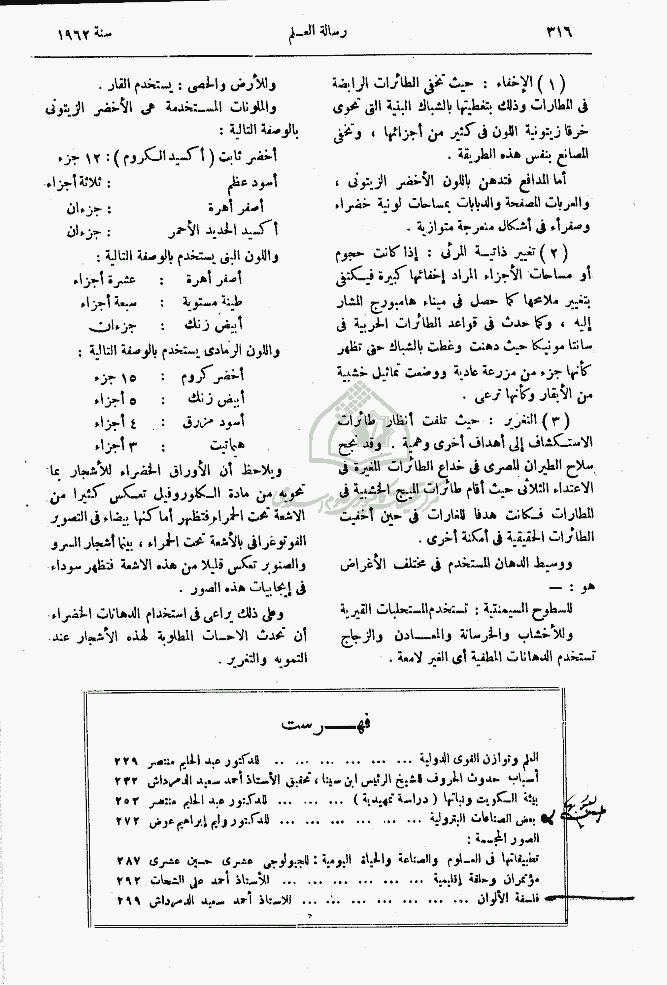 ٣١٦
رسالة العـلم
سنة ١٩٦٢
( ١ ) الإخفاء : حيث تخفي الطائرات الرابضة
فى المطارات وذلك بتغطيتها بالشباك البنية التى تحوى
خرقا زيتونية اللون فى كثير من أجزائها ، وتخفى
المصانع بنفس هذه الطريقة .
أما المدافع فتدهن باللون الأخضر الزيتونى ،
والعربات المصفحة والدبابات بمساحات لونية خضراء
وصفراء فى أشكال منعرجة متوازية .
( ٢ ) تغيير ذاتيـة المرئى : إذا كانت حجوم
أو مساحات الأجزاء المراد إخفائها كبيرة فيكتفى
بتغيير ملامحها كما حصل فى ميناء هامبورج المشار
إليه ، وكما حدث فى قواعد الطائرات الحربية فى
سانتا مونيكا حيث دهنت وغطت بالشباك حتى تظهر
كأنها جزء من مزرعة عادية ووضعت تماثيل خشبية
من الأبقار وكأنها ترعى .
( ٣ ) التغرير : حيث تلفت أنظار طائرات
الاستكشاف إلى أهداف أخرى وهمية . وقد نجح
سلاح الطيران المصرى فى خداع الطائرات المغيرة فى
الاعتداء الثلاثى حيث أقام طائرات الميج الخشبية فى
المطارات فكانت هدفا للغارات فى حين أخفيت
الطائرات الحقيقية فى أمكنة أخرى .
ووسيط الدهان المستخدم فى مختلف الأغراض
هو : —
للسطوح السيمنتية : تستخدم المستحلبات القيرية
وللأخشاب والخرسانة والمعـادن والزجاج
تستخدم الدهانات المطفية أى الغير لامعة .
وللأرض والحصى : يستخدم القار .
والملونات المستخدمة هى الأخضر الزيتونى
بالوصفة التالية :
أخضر ثابت ( أكسيد الكروم ) : ١٢ جزء
أسود عظم : ثلاثة أجزاء
أصفر أهرة : جزءان
أكسيد الحديد الأحمر : جزءان
واللون البنى يستخدم بالوصفة التالية :
أصفر أهرة : عشرة أجزاء
طينة مستوية : سبعة أجزاء
أبيض زنك : جزءان
واللون الرمادى يستخدم بالوصفة التالية :
أخضر كروم : ١٥ جزء
أبيض زنك : ٥ أجزاء
أسود مزرق : ٤ أجزاء
هماتيت : ٣ أجزاء
ويلاحظ أن الأوراق الخضراء للأشجار بما
تحويه من مادة الكلوروفيل تعكس كثيرا من
الاشعة تحت الحمراء فتظهر أما كنها بيضاء فى التصوير
الفوتوغرافى بالأشعة تحت الحمراء ، بينما أشجار السرو
والصنوبر تعكس قليلا من هذه الاشعة فتظهر سوداء
فى إيجابيات هذه الصور .
وعلى ذلك يراعى فى استخدام الدهانات الخضراء
أن تحدث الاحساسات المطلوبة لهذه الأشجار عند
التمويه والتغرير .
فهـــرست
العلم وتوازن القوى الدولية ... ... ... ... ... .. للدكتور عبد الحليم منتصر ٢٢٩
أسباب حدوث الحروف للشيخ الرئيس ابن سينا ، تحقيق الأستاذ أحمد سعيد الدمرداش ٢٣٢
بيئة الكويت ونباتها ( دراسة تمهيدية ) ... ... ... للدكتور عبد الحليم منتصر ٢٥٣
بعض الصناعات البترولية ... ... ... ... ... ... للدكتور وليم إبراهيم عوض ٢٧٢
الصور المجسمة :
تطبيقاتها فى العـلوم والصناعة والحياة اليومية : للجيولوجى عشرى حسين عشرى ٢٨٧
مؤتمران وحلقة إقليمية ... ... ... ... ... ... للأستاذ أحمد على الشحات ٢٩٢
فلسفة الألوان ... ... ... ... ... ... ... للاستاذ أحمد سعيد الدمرداش ٢٩٩